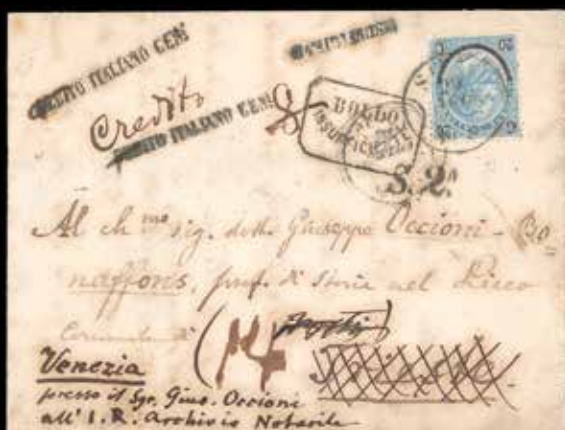 CREDITO ITALIANO CENI
Credito
CREDITO ITALIANO CENI
8
BOLLO
INSUFFICIENTE
C 20
20 C
S. 2ᴬ
Al ch.mo sig. dott. Giuseppe Occioni-Bo
naffons, prof. di Storia nel Liceo
Comunale di
(14)
Venezia
presso il Sgr. Gius. Occioni
all' I. R. Archivio Notarile